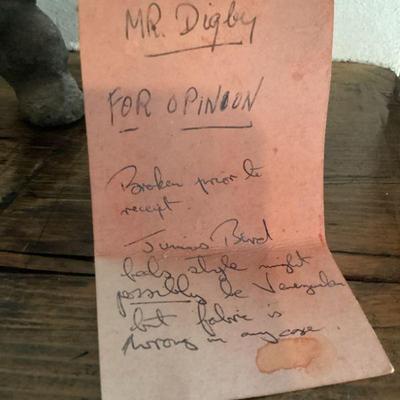 MR. Digby
FOR OPINION
Broken prior to
receipt.
Junius Bird
feels style might
possibly be Venezuelan
but fabric is
wrong in any case.